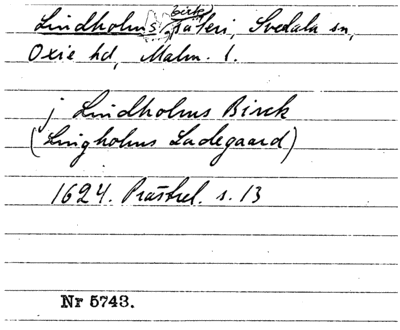 Lindholms birk, säteri, Svedala sn,
Oxie hd, Malm. l.
j Lindholms Birck
(Lingholms Ladegaard)
1624. Prästrel. s. 13
Nr 5743.